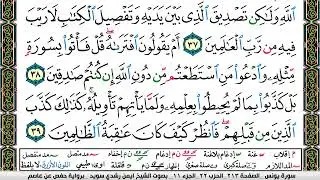 ٱللَّهِ وَلَٰكِن تَصْدِيقَ ٱلَّذِى بَيْنَ يَدَيْهِ وَتَفْصِيلَ ٱلْكِتَٰبِ لَا رَيْبَ
فِيهِ مِن رَّبِّ ٱلْعَٰلَمِينَ ٣٧ أَمْ يَقُولُونَ ٱفْتَرَىٰهُ قُلْ فَأْتُوا۟ بِسُورَةٍ
مِّثْلِهِۦ وَٱدْعُوا۟ مَنِ ٱسْتَطَعْتُم مِّن دُونِ ٱللَّهِ إِن كُنتُمْ صَٰدِقِينَ ٣٨
بَلْ كَذَّبُوا۟ بِمَا لَمْ يُحِيطُوا۟ بِعِلْمِهِۦ وَلَمَّا يَأْتِهِمْ تَأْوِيلُهُۥ كَذَٰلِكَ كَذَّبَ
ٱلَّذِينَ مِن قَبْلِهِمْ فَٱنظُرْ كَيْفَ كَانَ عَٰقِبَةُ ٱلظَّٰلِمِينَ ٣٩
سورة يونس - الصفحة ٢١٣ - الجزء ١١ - بصوت الشيخ أيمن رشدي سويد - برواية حفص عن عاصم